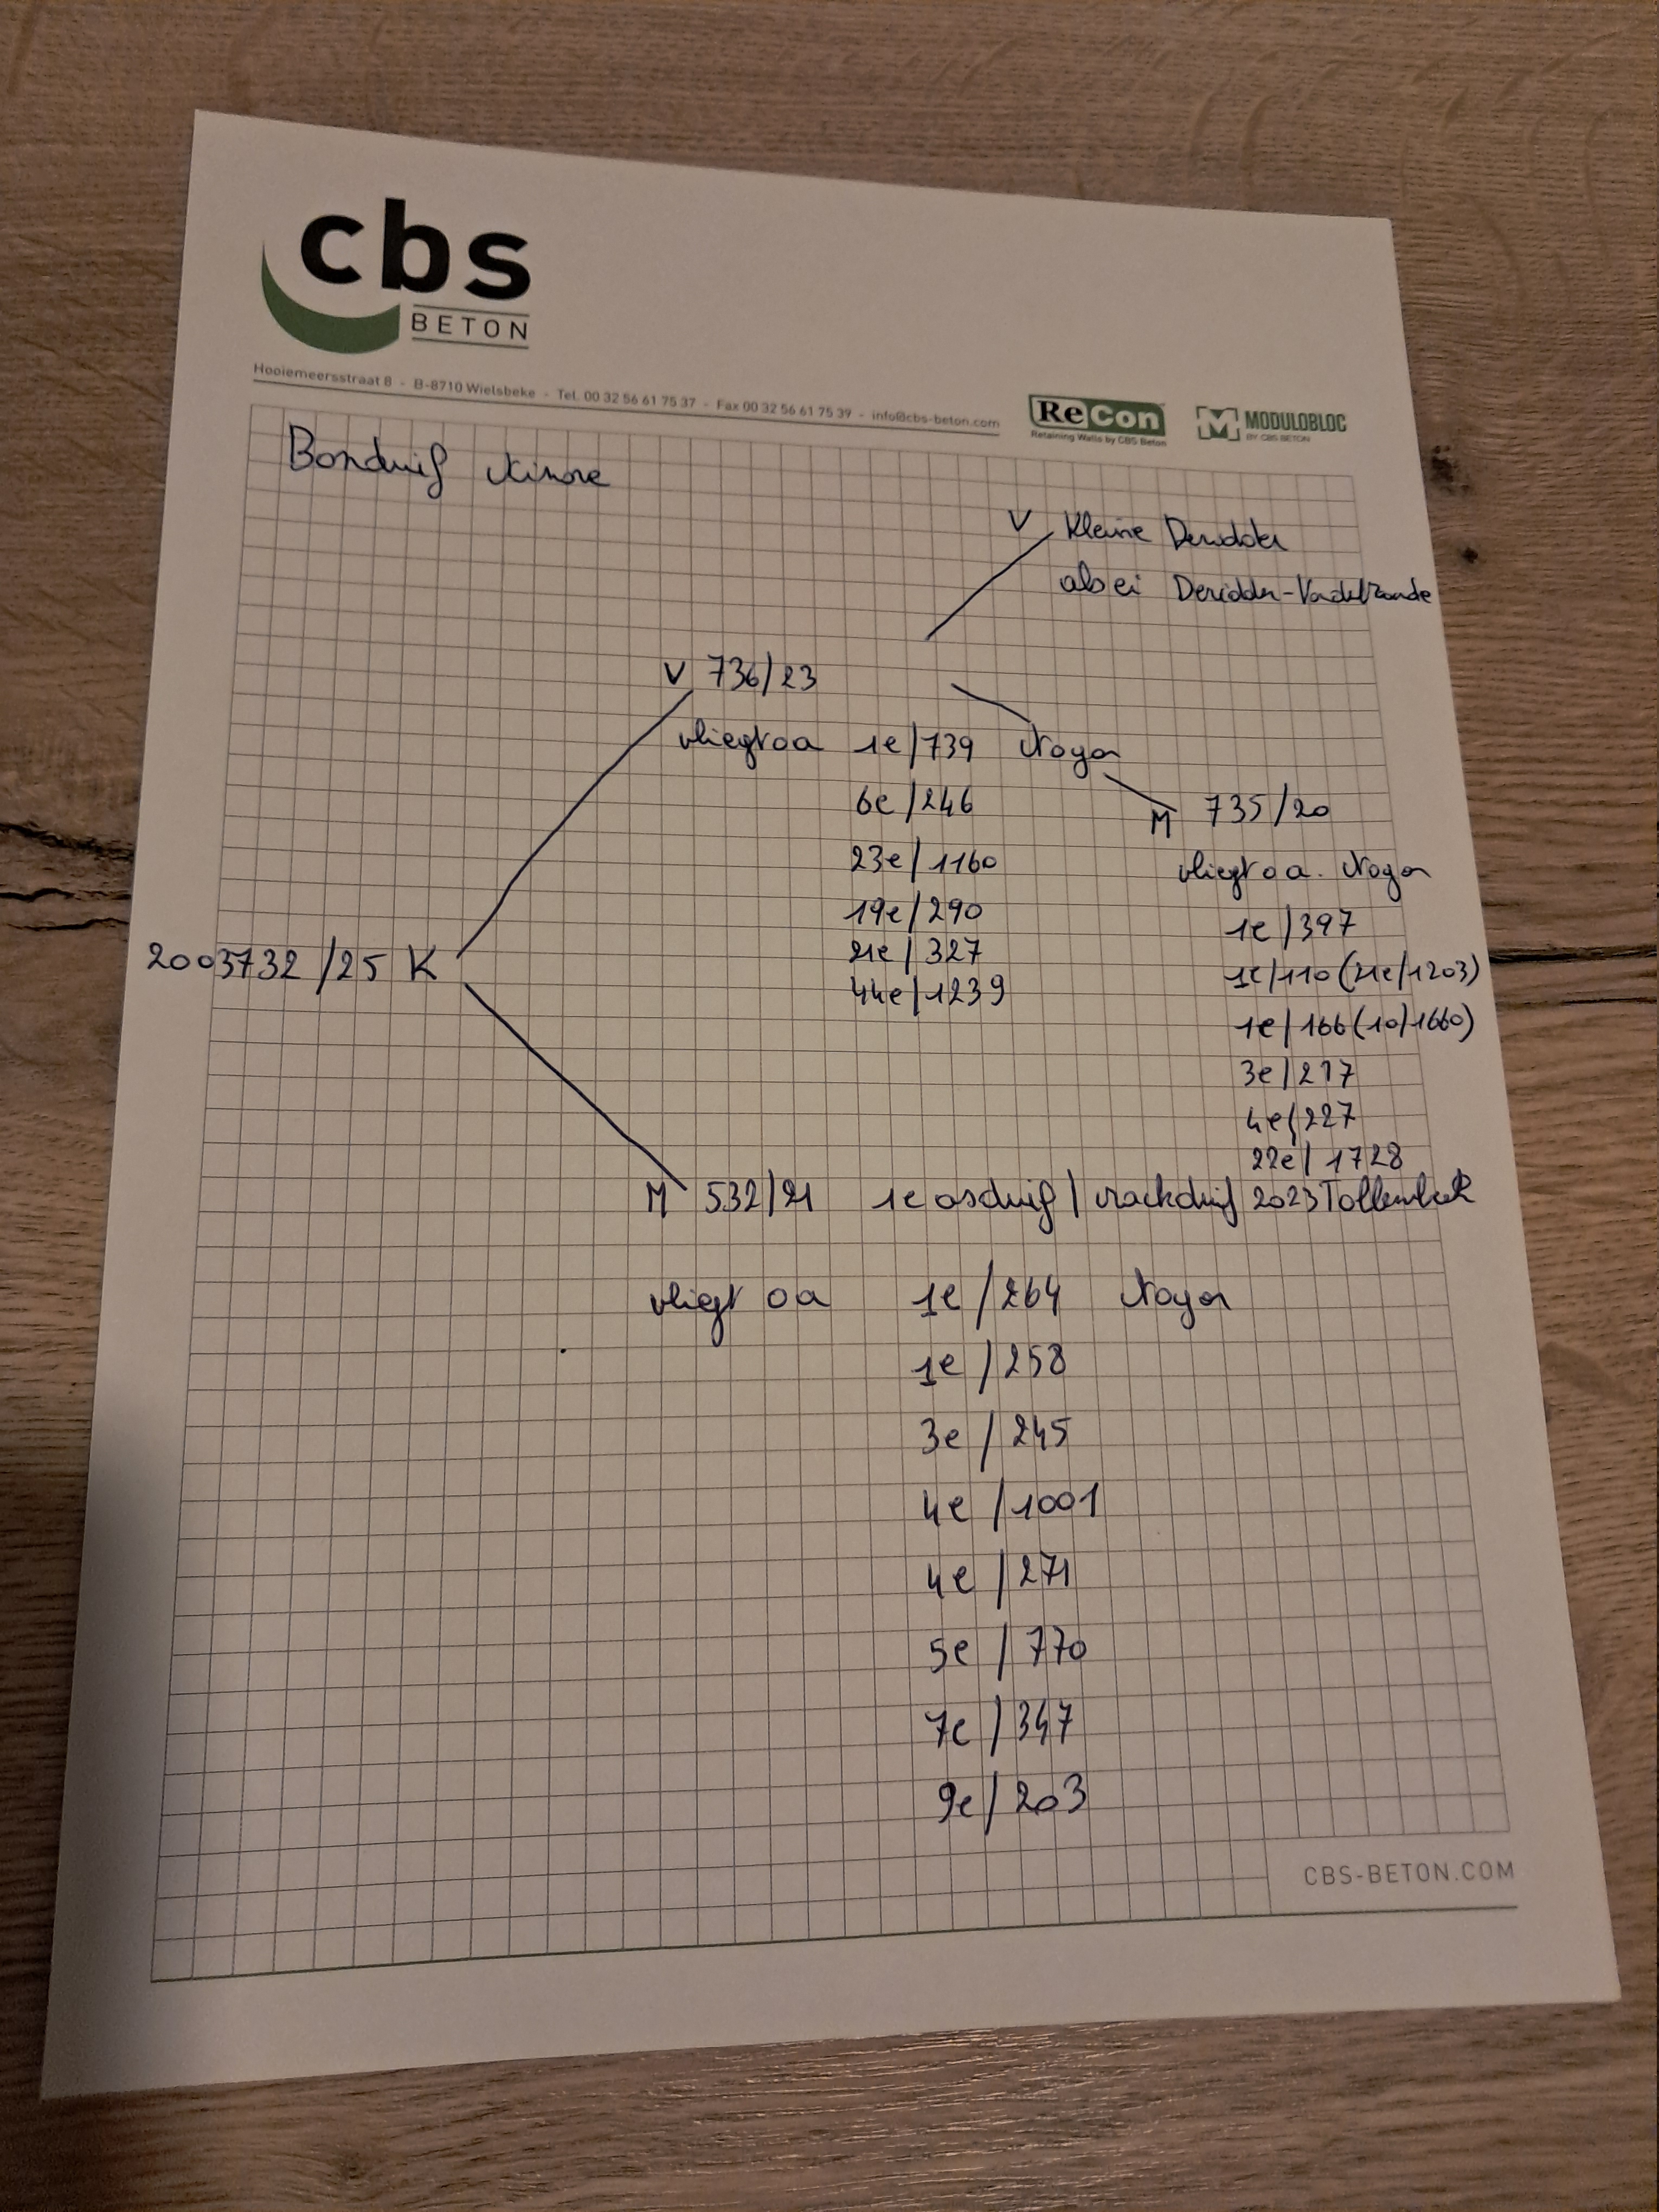 cbs
BETON
Hooiemeersstraat 8 - B-8710 Wielsbeke - Tel. 00 32 56 61 75 37 - Fax 00 32 56 61 75 39 - info@cbs-beton.com
ReCon
Retaining Walls by CBS Beton
MODULOBLOC
BY CBS BETON
Bonduif Ninove
V Kleine Deridder
als ei Deridder-Vandelzande
V 736/23
vliegt oa 1e/739 Noyon
6e/246
23e/1160
19e/290
21e/327
44e/1239
M 735/20
vliegt oa. Noyon
1e/397
1e/110 (21e/1203)
1e/166 (10/1660)
3e/217
4e/227
22e/1728
2003732/25 K
M 532/21 1e asduif / 2023 Tollembeek
vliegt oa 1e/264 Noyon
1e/258
3e/245
4e/1001
4e/271
5e/770
7e/347
9e/203
CBS-BETON.COM